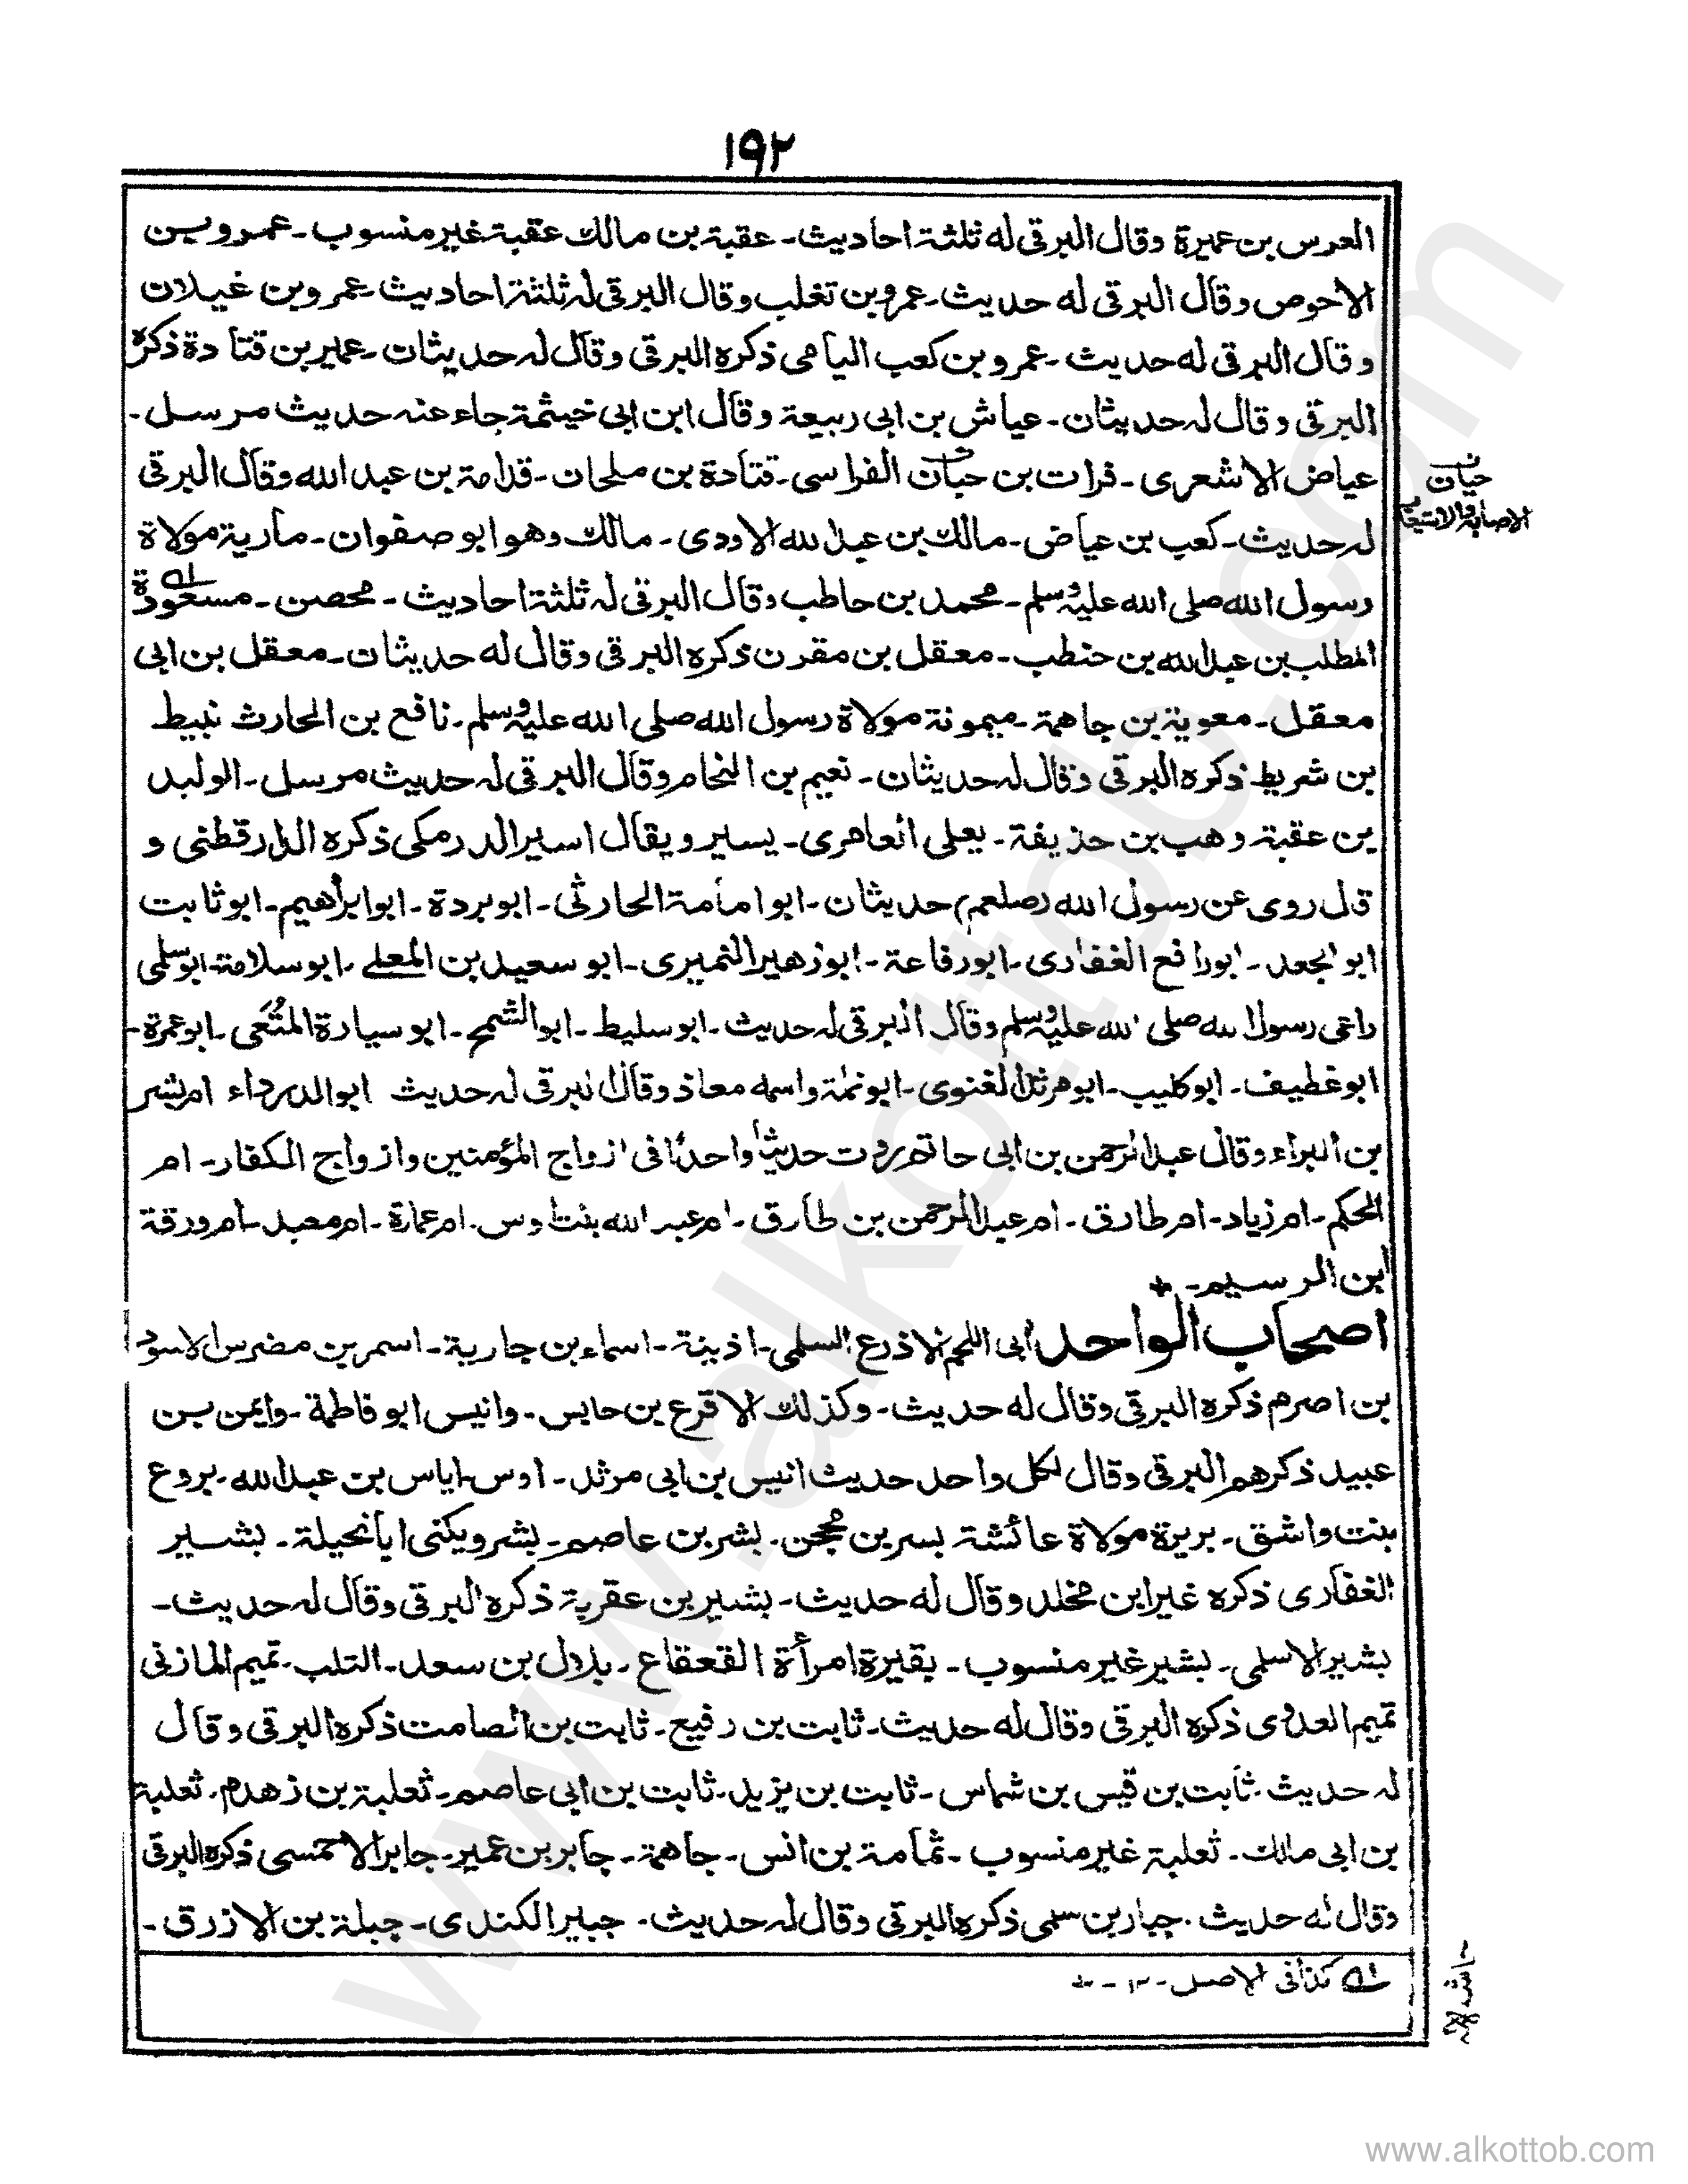 ١٩٢
العرس بن عميرة وقال البرقى له ثلثة احاديث - عقبة بن مالك عقبة غير منسوب - عمرو بن
الاحوص وقال البرقى له حديث - عمرو بن تغلب وقال البرقى له ثلثة احاديث - عمرو بن غيلان
وقال البرقى له حديث - عمرو بن كعب اليامى ذكره البرقى وقال له حديثان - عمير بن قتادة ذكره
البرقى وقال له حديثان - عياش بن ابى ربيعة وقال ابن ابى خيثمة جاء عنه حديث مرسل -
عياض الاشعرى - فرات بن حبان الفراسى - قتادة بن ملحان - قدامة بن عبد الله وقال البرقى
حيان
الاصابة والاستيعاب
له حديث - كعب بن عياض - مالك بن عبد الله الاودى - مالك وهو ابو صفوان - مارية مولاة
رسول الله صلى الله عليه وسلم - محمد بن حاطب وقال البرقى له ثلثة احاديث - محصن - مسعودة
المطلب بن عبد الله بن حنطب - معقل بن مقرن ذكره البرقى وقال له حديثان - معقل بن ابى
معقل - معوية بن جاهمة - ميمونة مولاة رسول الله صلى الله عليه وسلم - نافع بن الحارث نبيط
بن شريط ذكره البرقى وقال له حديثان - نعيم بن النحام وقال البرقى له حديث مرسل - الوليد
بن عقبة وهب بن حذيفة - يعلى العامرى - يسير ويقال اسير الدرمكى ذكره الدارقطنى و
قال روى عن رسول الله (صلعم) حديثان - ابو امامة الحارثى - ابو بردة - ابو ابراهيم - ابو ثابت
ابو الجعد - ابو رافع الغفارى - ابو رفاعة - ابو زهير النميرى - ابو سعيد بن المعلى - ابو سلامة - ابو سلمى
راعى رسول الله صلى الله عليه وسلم وقال البرقى له حديث - ابو سليط - ابو الشمح - ابو سيارة المتعى - ابو عمرة -
ابو غطيف - ابو كليب - ابو مرثد الغنوى - ابو نملة واسمه معاذ وقال البرقى له حديث ابو الدرداء ام بشر
بن البراء وقال عبد الرحمن بن ابى حاتم روت حديثا واحدا فى ازواج المؤمنين وازواج الكفار - ام
الحكم - ام زياد - ام طارق - ام عبد الرحمن بن طارق - ام عبد الله بنت اوس - ام عمارة - ام معبد - ام ورقة
ابن الرسيم - +
اصحاب الواحد ابى اللحم الاذرع السلمى - اذينة - اسماء بن جارية - اسمر بن مضرس الاسود
بن اصرم ذكره البرقى وقال له حديث - وكذلك الاقرع بن حابس - وانيس ابو فاطمة - وايمن بن
عبيد ذكرهم البرقى وقال لكل واحد حديث انيس بن ابى مرثد - اوس اياس بن عبد الله - بروع
بنت واشق - بريرة مولاة عائشة بسر بن محجن - بشر بن عاصم - بشر ويكنى ابا نحيلة - بشير
الغفارى ذكره غير ابن مخلد وقال له حديث - بشير بن عقربة ذكره البرقى وقال له حديث -
بشير الاسلمى - بشير غير منسوب - بقيرة امرأة القعقاع - بلال بن سعد - التلب - تميم المازنى
تميم العدوى ذكره البرقى وقال له حديث - ثابت بن رفيع - ثابت بن الصامت ذكره البرقى وقال
له حديث - ثابت بن قيس بن شماس - ثابت بن يزيد - ثابت بن ابى عاصم - ثعلبة بن زهدم - ثعلبة
بن ابى مالك - ثعلبة غير منسوب - ثمامة بن انس - جاهمة - جابر بن عمير - جابر الاحمسى ذكره البرقى
وقال له حديث - جبار بن سلمى ذكره البرقى وقال له حديث - جبير الكندى - جبلة بن الازرق -
له كذا فى الاصل - ١٢ -
www.alkottob.com
www.alkottob.com